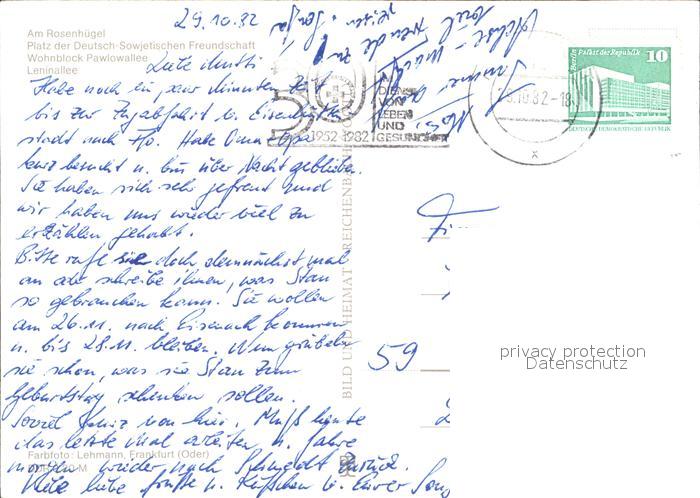 Am Rosenhügel
Platz der Deutsch-Sowjetischen Freundschaft
Wohnblock Pawlowallee
Leninallee
29.10.82
Liebe
Habe noch ein paar Minuten Zeit
bis zur Zugabfahrt v. Eisenhütten
stadt nach Ffo. Habe Oma + Opa
kurz besucht u. bin über Nacht geblieben.
Sie haben sich sehr gefreut und
wir haben uns wieder viel zu
erzählen gehabt.
Bitte rufe sie doch demnächst mal
an oder schreibe ihnen, was Stan
so gebrauchen kann. Sie wollen
am 26.11. nach Eisenach kommen
u. bis 28.11. bleiben. Nun grübeln
sie schon, was sie Stan zum
Geburtstag schenken sollen.
Soviel kurz von hier. Muß heute
das letzte Mal arbeiten u. fahre
morgen wieder nach Schwedt zurück.
Viele liebe Grüße u. Küßchen v. Eurer
Farbfoto: Lehmann, Frankfurt (Oder)
BILD UND HEIMAT REICHENBACH
50
IM
DIENST
VON
LEBEN
UND
GESUNDHEIT
1952-1982
29.10.82-18
Berlin, Palast der Republik
10
DEUTSCHE DEMOKRATISCHE REPUBLIK
59
privacy protection
Datenschutz